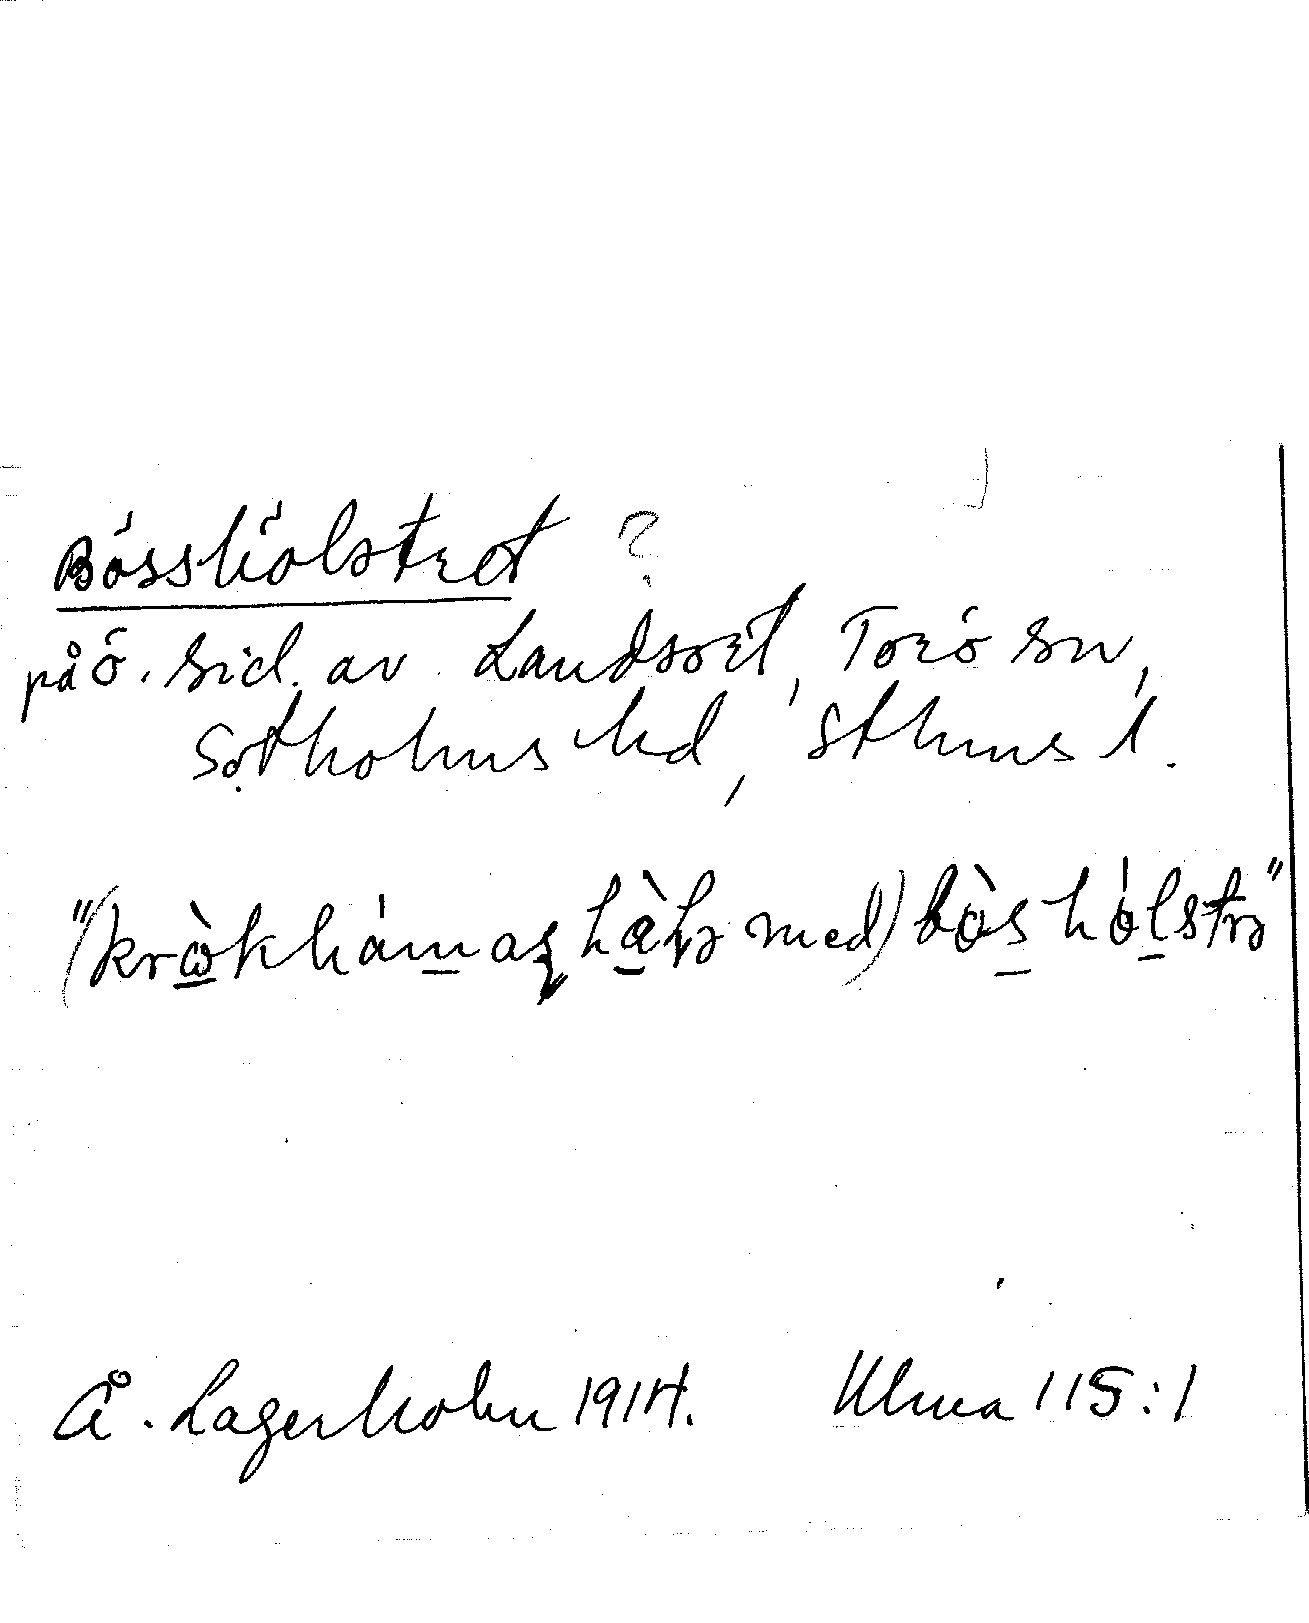 Bösshölstret ?
på ö. sid. av Landsort, Torö sn,
Sotholms hd, Sthms l.
"( med) bòs hólstrə"
Å. Lagerholm 1914. Ulma 115:1